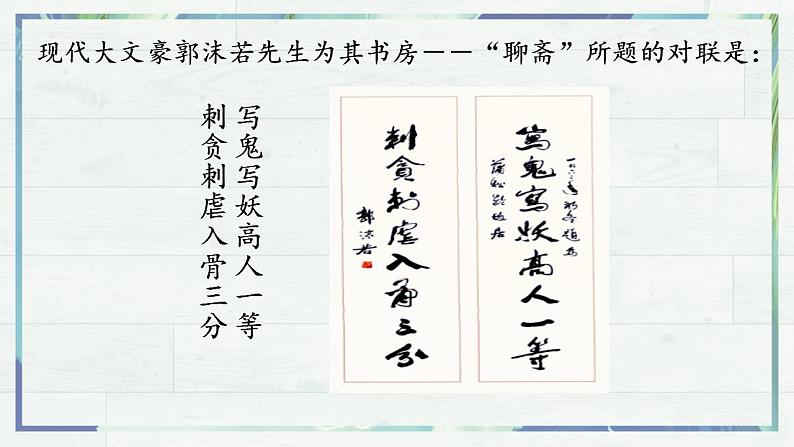 现代大文豪郭沫若先生为其书房——“聊斋”所题的对联是：
写鬼写妖高人一等
刺贪刺虐入骨三分
一九六二年初冬题为
蒲松龄故居
写鬼写妖高人一等
刺贪刺虐入骨三分
郭沫若